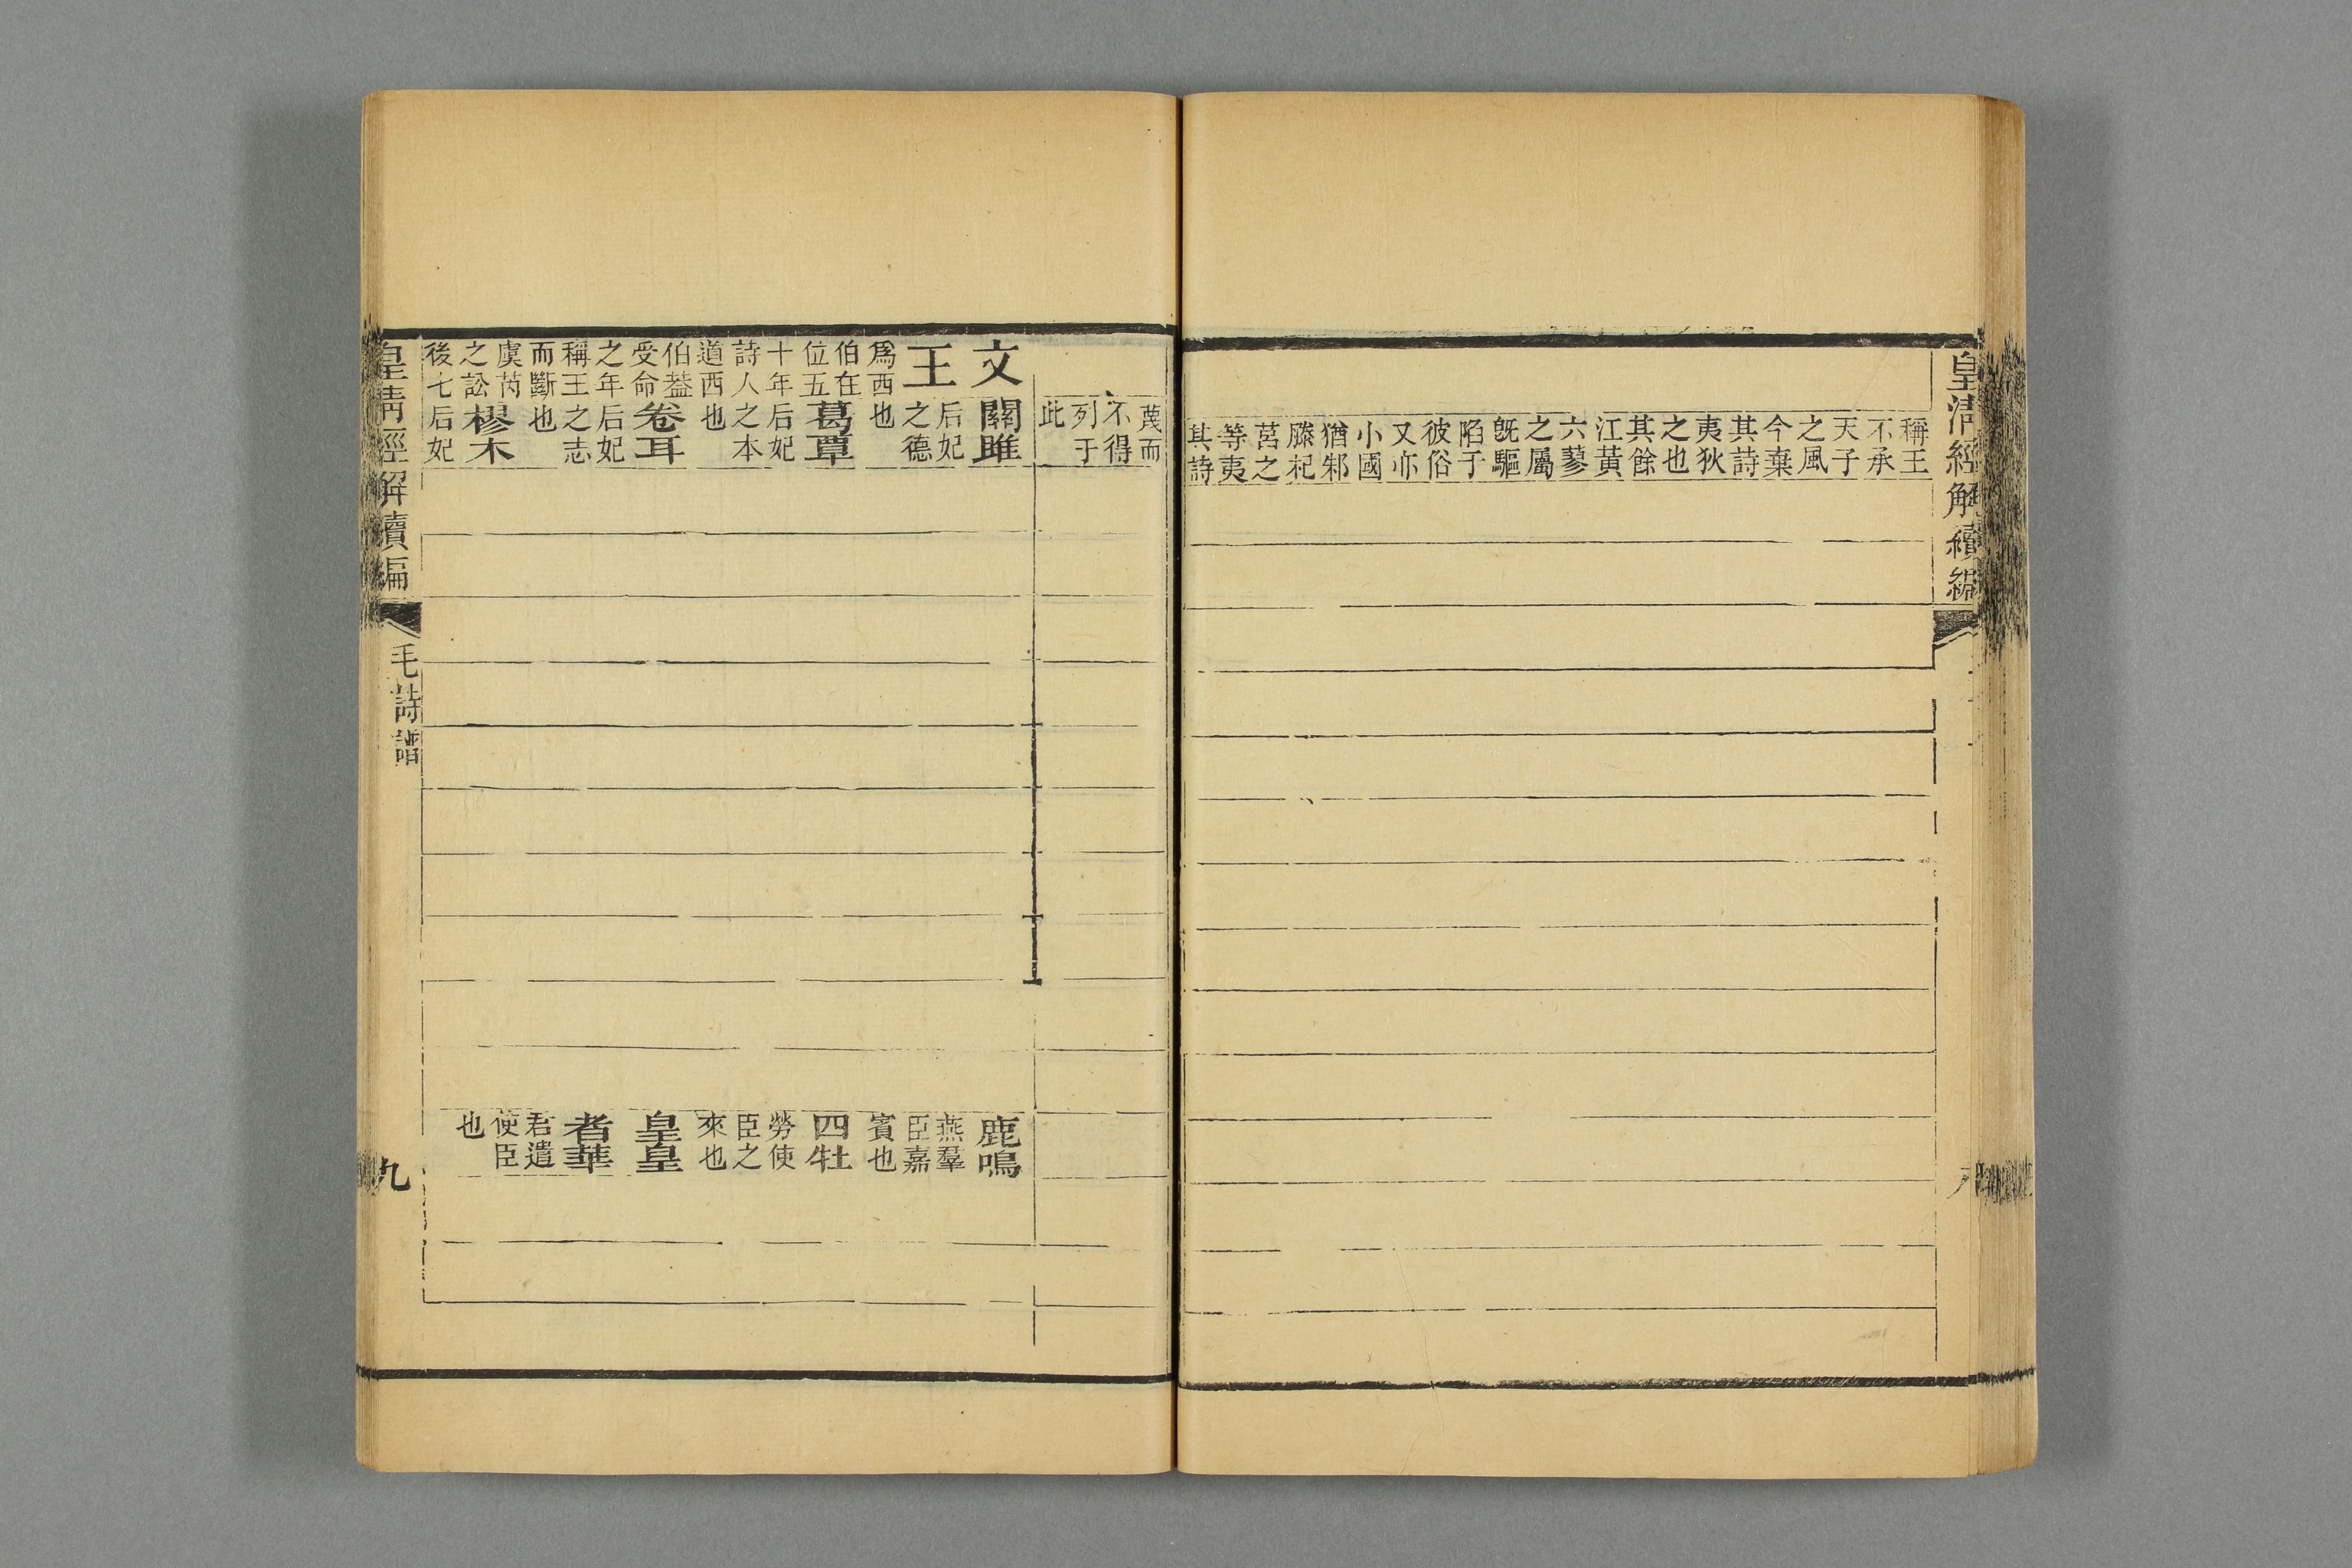 皇清經解續編
稱王
不承
天子
之風
今棄
其詩
夷狄
之也
其餘
江黃
六蓼
之屬
旣驅
陷于
彼俗
又亦
小國
猶邾
滕杞
莒之
等夷
其詩
蔑而
不得
列于
此
文
王
爲西
伯在
位五
十年
詩人
道西
伯葢
受命
之年
稱王
而斷
虞芮
之訟
後七
關雎
后妃
之德
也
葛覃
后妃
之本
也
卷耳
后妃
之志
也
樛木
后妃
鹿鳴
燕羣
臣嘉
賓也
四牡
勞使
臣之
來也
皇皇
者華
君遣
使臣
也
皇淸經解續編
毛詩譜
九